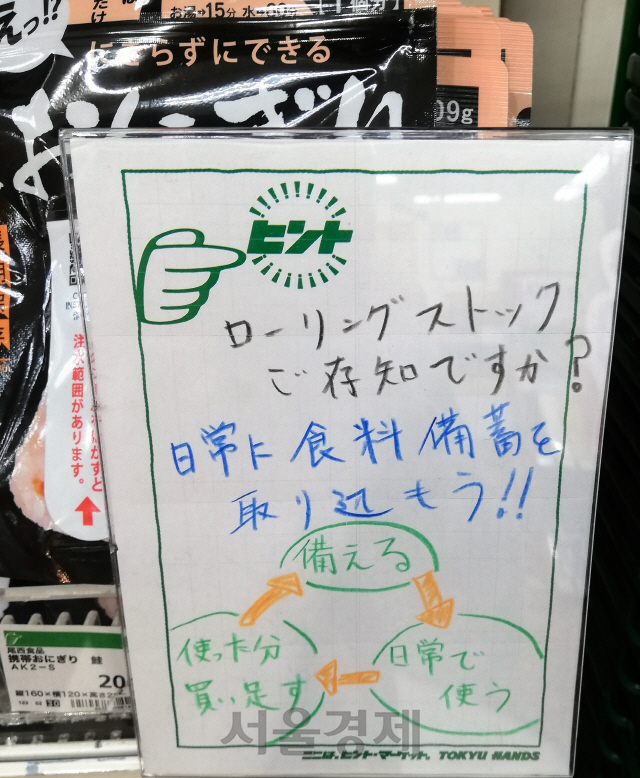 お湯→15分
にぎらずにできる
おにぎり
09g
ヒント
ローリングストック
ご存知ですか?
日常に食料備蓄を
取り込もう!!
備える
日常で
使う
使った分
買い足す
注水範囲があります。
尾西食品
携帯おにぎり 鮭
AK2-S
20
縦160×横120×高さ2
서울경제
ここは、ヒント・マーケット。 TOKYU HANDS